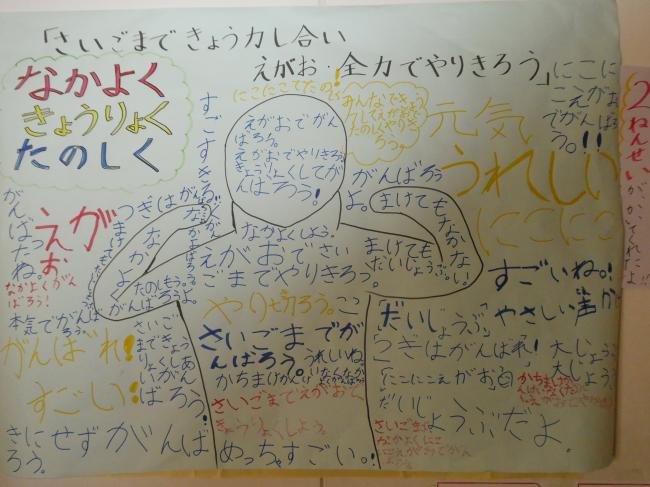 「さいごまできょう力し合い
えがお・全力でやりきろう」
なかよく
きょうりょく
たのしく
にこにこでたのしく
みんなできょう
力してえがおで
たのしくやりき
ろう。
元気
うれしい
にこにこ
にこに
こえがお
でがんば
ろう。!!
2ねんせい
がかいてくれたよ!!
えがおでがん
ばろう。
えがおでやりきろう
きょうりょくしてが
んばろう!
がんばろう
よ。
まけてもなかない。
すごすぎる
がん
ばったね。
えが
お
なかよくがん
ばろう!
つぎはがん
なかよくしよう。
えがおでさい
ごまでやりきろう。
まけても
だいじょうぶ。
すごいね。!
本気でがんば
ろう。
がんばれ!
すごい!
やりぜきろう。
さいごまでが
んばろう。
うれしいね。
さいごまでえがおで
きょうりょくしよう。
めっちゃすごい。!
「だいじょうぶ」
やさしい声が
「つぎはがんばれ!
大じょうぶ
大じょうぶ
「にこにこえがお」
だいじょうぶだよ。
きにせずがんば
ろう。